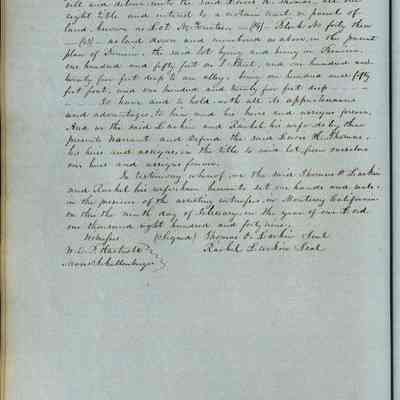 sell and deliver unto the said Lewis H. Thomas, all our
right title and interest to a certain tract or parcel of
land, known as Lot No. fourteen — (14) — Block No forty three
— (43) — as laid down and numbered as above, in the present
plan of the said lot lying and being on
one hundred and fifty feet on I Street, and one hundred and
twenty five feet deep to an alley, being one hundred and fifty
feet front, and one hundred and twenty five feet deep - - - -
- - - - To have and to hold, with all its appurtenances
and advantages, to him and his heirs and assigns forever.
And we the said Larkin and Rachel his wife do by these
presents Warrant and defend the said Lewis H. Thomas,
his heirs and assigns, in the title to said lot from ourselves
our heirs and assigns forever.
In testimony whereof, we the said Thomas O. Larkin
and Rachel his wife have hereunto set our hands and seals,
in the presence of the attesting witnesses, in Monterey California
on this the ninth day of February, in the year of our Lord
one thousand eight hundred and forty nine.
Witness (Signed) Thomas O. Larkin Seal
W. E. P. Hartnell Rachel Larkin Seal
Moses Schallenberger